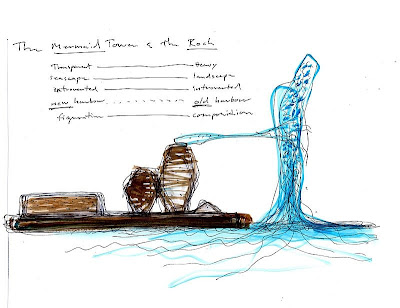 The Mermaid Tower & the Rock
Transparent Heavy
seascape landscape
extroverted introverted
new harbour old harbour
composition